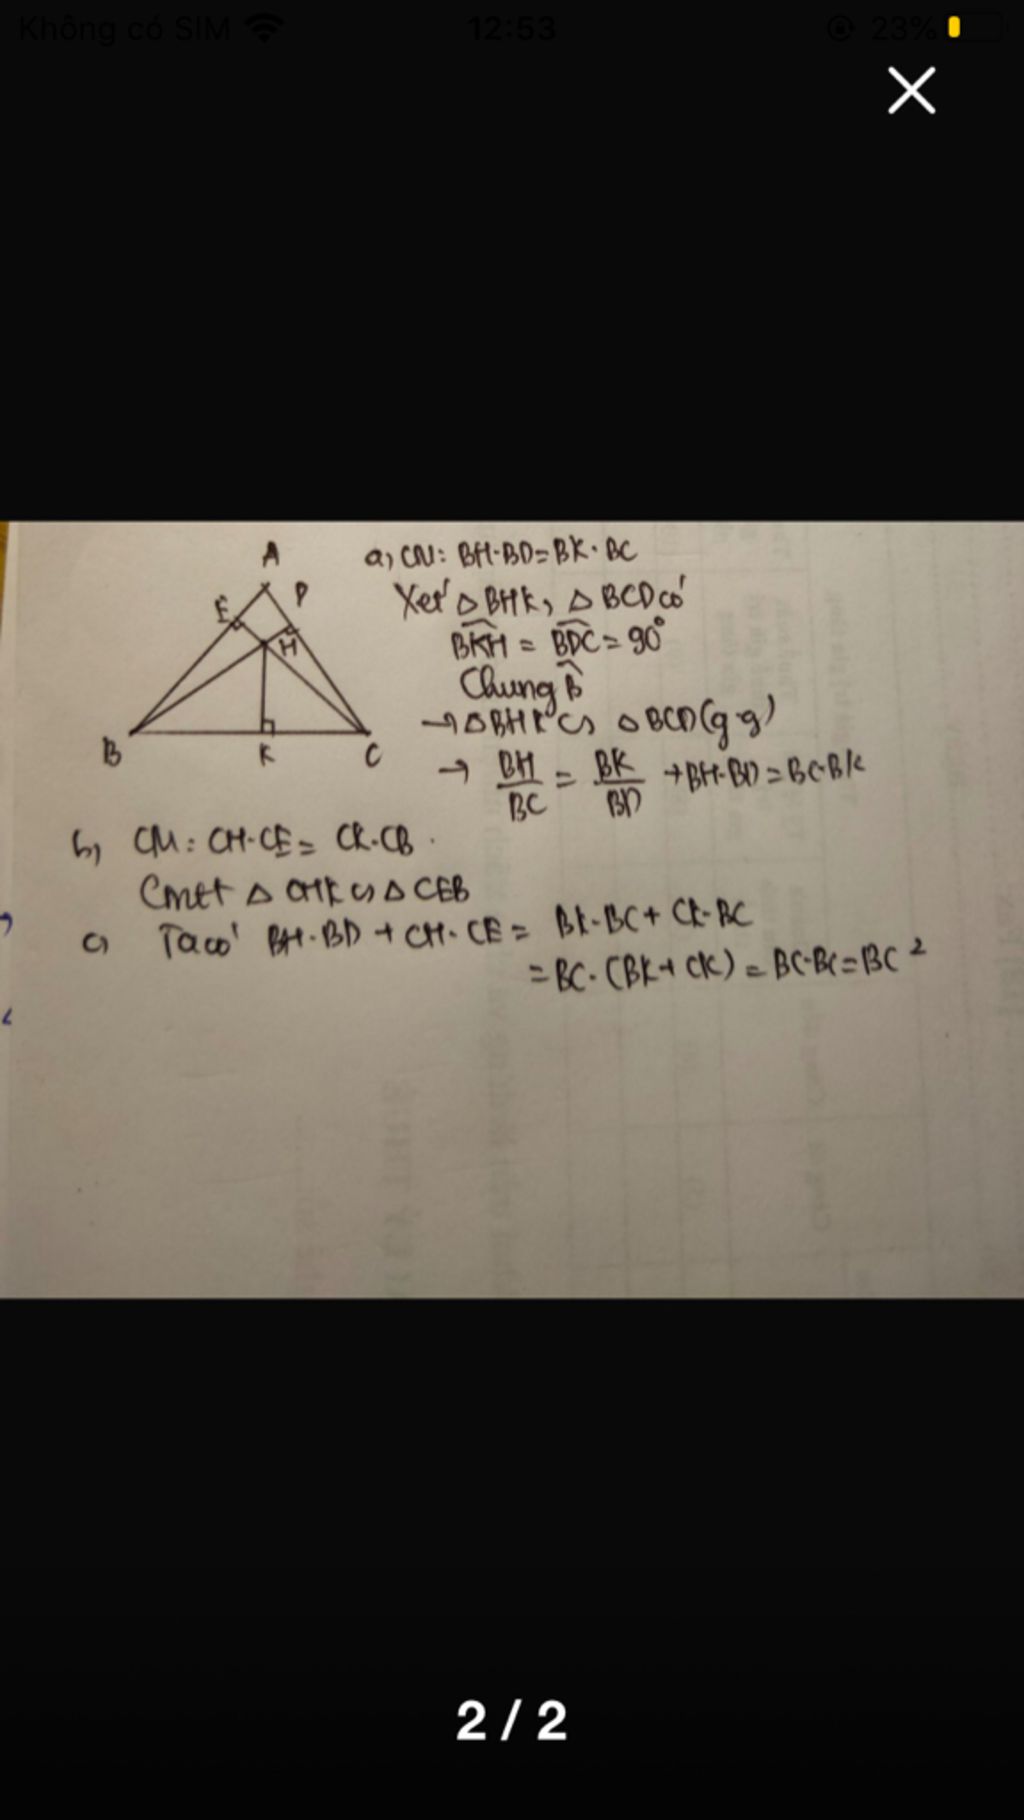 Không có SIM 12:53 23%
A
E
D
H
B
K
C
a, CM: BH.BD = BK.BC
Xét △BHK, △BCD có
BKH = BDC = 90°
Chung B
→ △BHK ∽ △BCD (g.g)
→ BH/BC = BK/BD → BH.BD = BC.BK
b, CM: CH.CE = CK.CB.
Cmtt △CHK ∽ △CEB
c, Ta có BH.BD + CH.CE = BK.BC + CK.BC
= BC.(BK + CK) = BC.BC = BC²
2 / 2